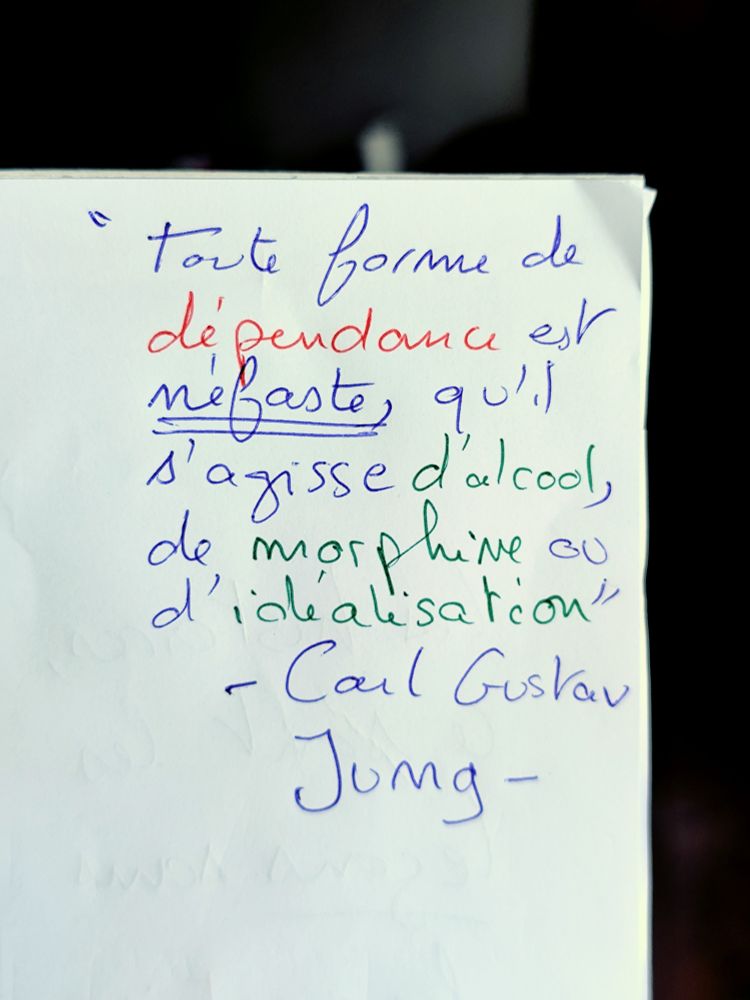 "Toute forme de
dépendance est
néfaste, qu'il
s'agisse d'alcool,
de morphine ou
d'idéalisation"
- Carl Gustav
Jung -